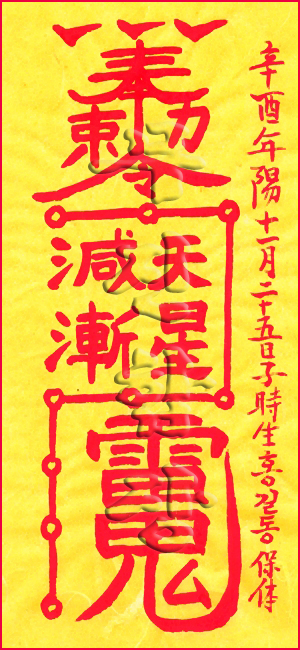 辛酉年陽十一月二十五日子時生홍길동保体
奉
勅
令
天星
減漸